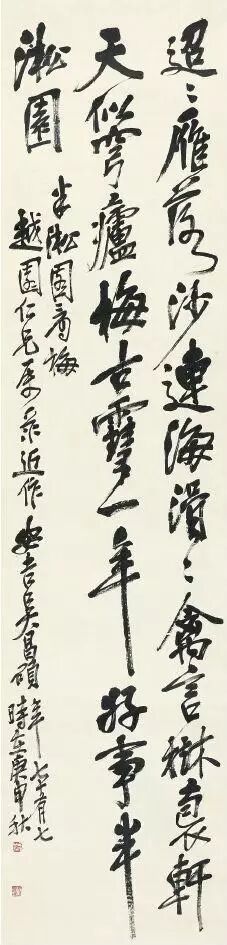 迢〻雁落沙連海滑〻禽言裏軒
天似穹廬梅古雪一年好事半
淞園
半淞園看梅
越園仁兄屬录近作安吉吳昌碩年七十有七
時在庚申秋